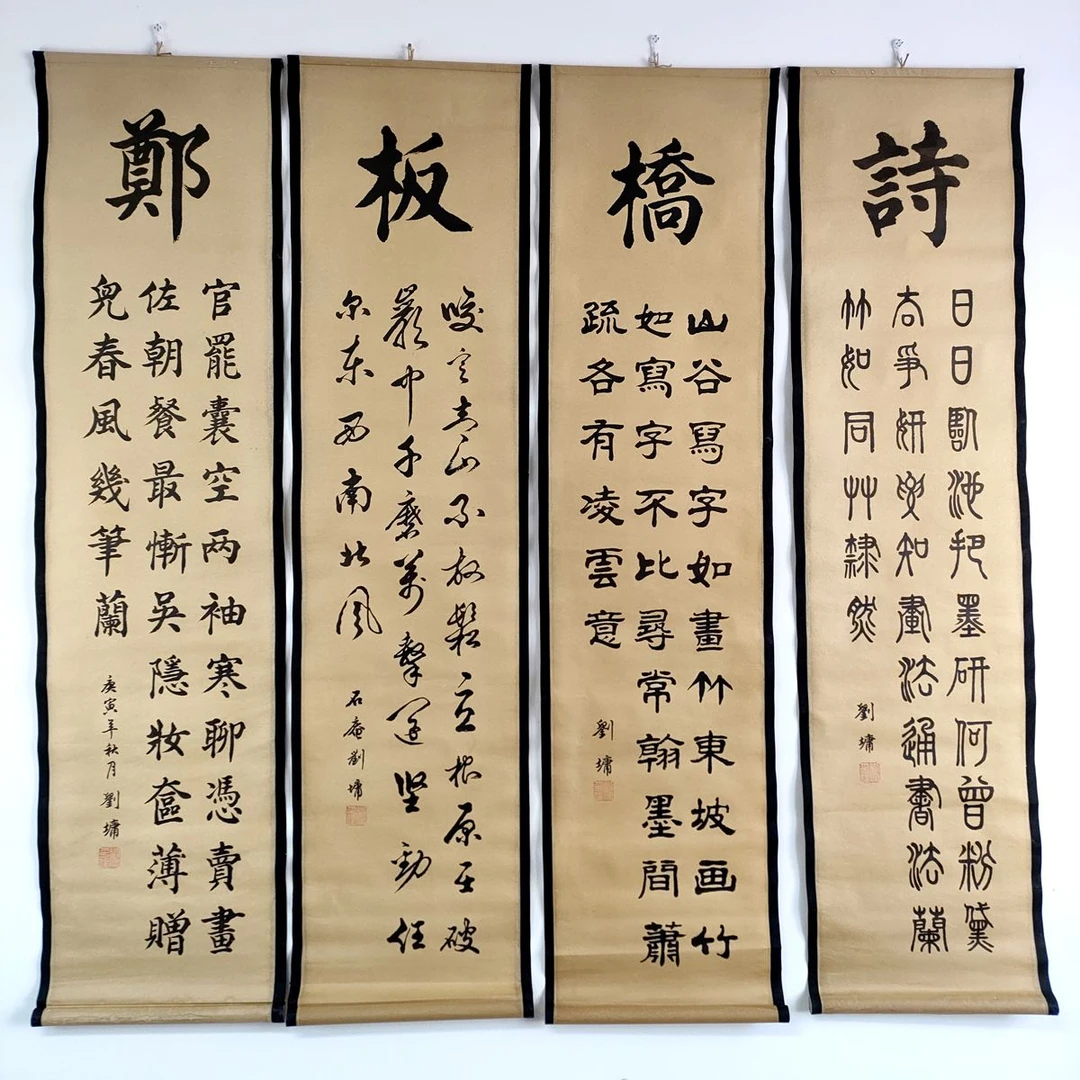 鄭
官罷囊空两袖寒聊憑賣畫
佐朝餐最慚吳隱妝奩薄贈
兒春風幾筆蘭
庚寅年秋月 劉墉
板
咬定青山不放鬆立根原在破
巖中千磨萬擊還坚勁任
尔東西南北風
石庵劉墉
橋
山谷寫字如畫竹東坡画竹
如寫字不比尋常翰墨間蕭
疏各有凌雲意
劉墉
詩
日日臨池把墨研何曾粉黛
去爭妍要知畫法通書法蘭
竹如同艸隸然
劉墉